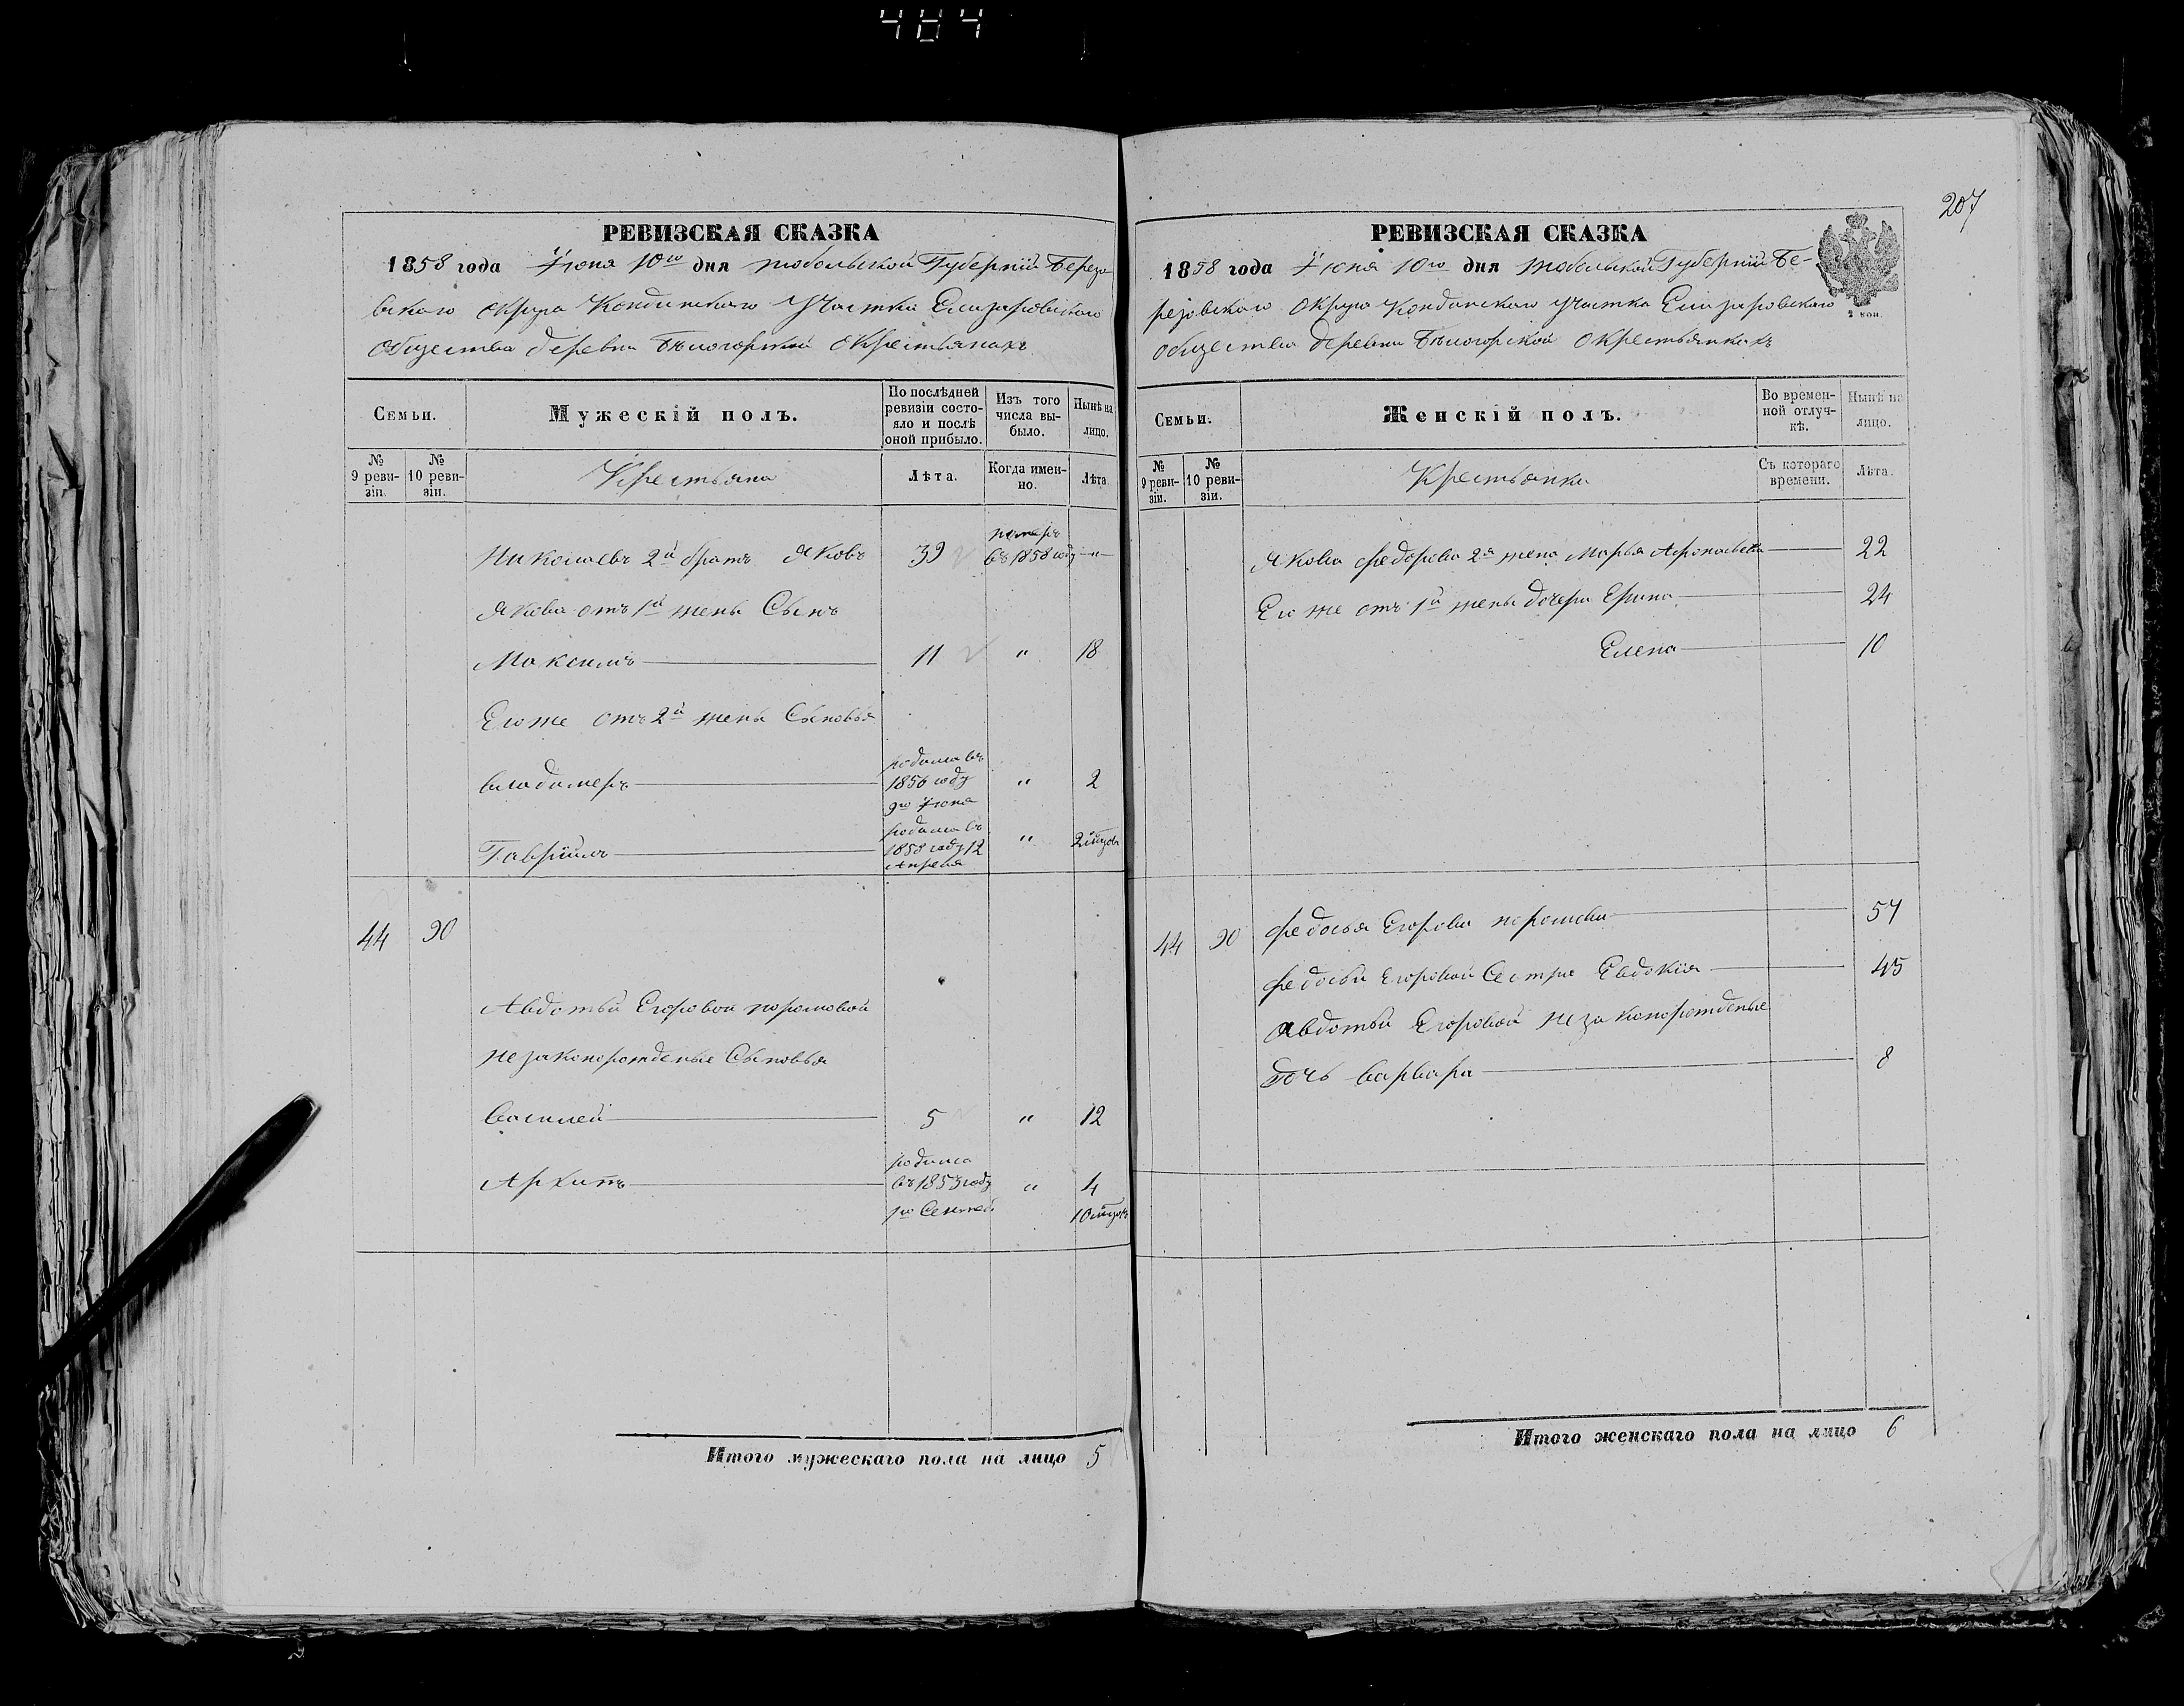 464
207
РЕВИЗСКАЯ СКАЗКА
1858 года Іюня 10го дня Тобольской Губерніи Березо
вскаго округа Кондинскаго Участка Елизаровскаго
общества деревни Бѣлогорской о крестьянахъ
Семьи.
Мужескій полъ.
По послѣдней ревизіи состо-
яло и послѣ
оной прибыло.
Изъ того
числа вы-
было.
Нынѣ на
лицо.
№
9 реви-
зіи.
№
10 реви-
зіи.
Крестьяна
Лѣта.
Когда имен-
но.
Лѣта.
Николаевъ 2й братъ Яковъ 39 померъ
въ 1858 году —"—
Якова отъ 1й жены Сынъ
Максимъ 11 " 18
Его же отъ 2й жены Сыновья
Владимеръ родился въ
1856 году
9го Іюня " 2
Гавріилъ родился въ
1858 году 12
Апреля " 2 мѣсяца
44 90
Авдотьи Егоровой
незаконорожденые Сыновья
Василей 5 " 12
Архипъ родился
въ 1853 году
" 4
10
Итого мужескаго пола на лицо 5
РЕВИЗСКАЯ СКАЗКА
1858 года Іюня 10го дня Тобольской Губерніи Бе-
резовскаго округа Кондинскаго участка Елизаровскаго
общества деревни Бѣлогорской о крестьянкахъ
2 коп.
Семьи.
Женскій полъ.
Во времен-
ной отлуч-
кѣ.
Нынѣ на
лицо.
№
9 реви-
зіи.
№
10 реви-
зіи.
Крестьянки
Съ котораго
времени.
Лѣта.
Якова Федорова 2я жена Марья 22
Его же отъ 1й жены дочери Ерина 24
Елена 10
44 90 Федосья Егорова 57
Федосьи Егоровой Сестра Евдокія 45
Авдотьи Егоровой незаконорожденые
дочь Варвара 8
Итого женскаго пола на лицо 6